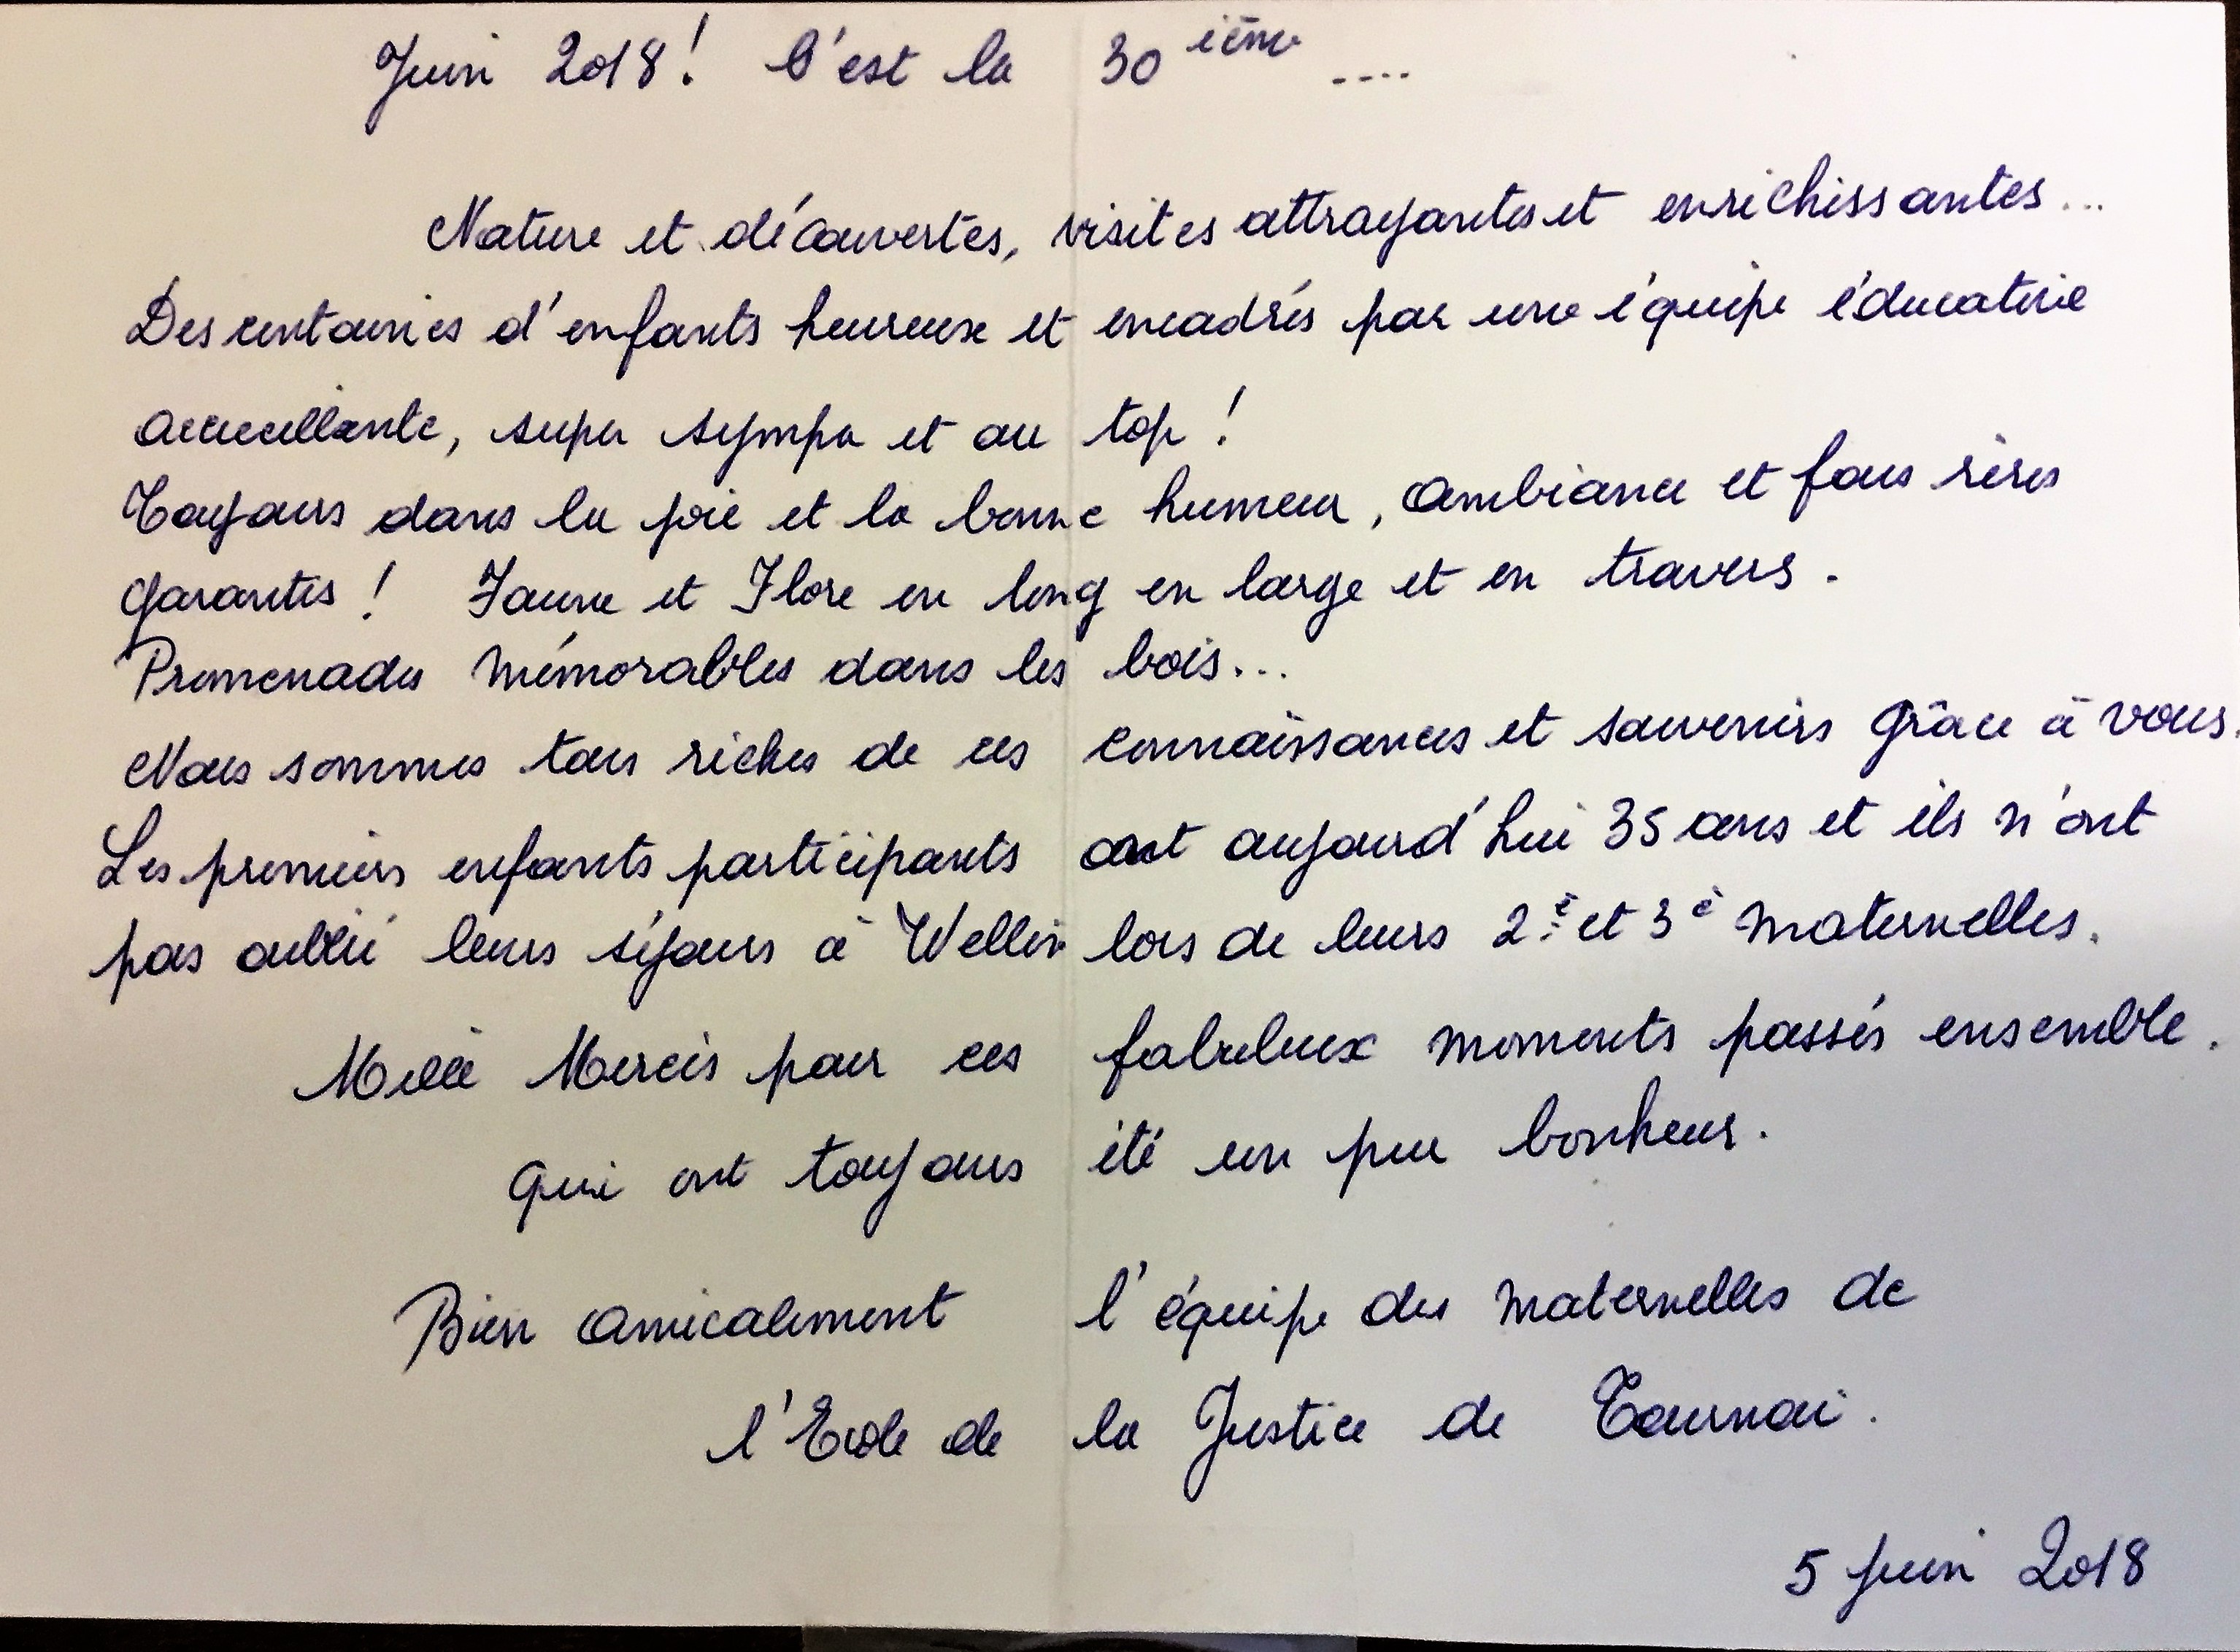 Juin 2018! C'est la 30 ième ....
Nature et découvertes, visites attrayantes et enrichissantes...
Des centaines d'enfants heureux et encadrés par une équipe éducative
accueillante, super sympa et au top !
Toujours dans la joie et la bonne humeur, ambiance et fous rires
garantis ! Faune et Flore en long en large et en travers.
Promenades mémorables dans les bois...
Nous sommes tous riches de ces connaissances et souvenirs grâce à vous.
Les premiers enfants participants ont aujourd'hui 35 ans et ils n'ont
pas oublié leurs séjours à Wellin lors de leurs 2è et 3è maternelles.
Mille Mercis pour ces fabuleux moments passés ensemble.
qui ont toujours été un pur bonheur.
Bien amicalement l'équipe des maternelles de
l'Ecole de la Justice de Tournai.
5 juin 2018